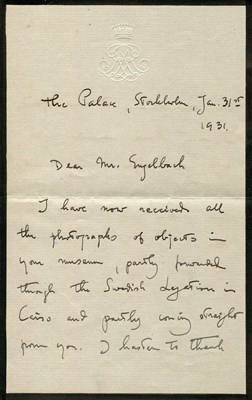 The Palace, Stockholm, Jan. 31st
1931.
Dear Mr. Engelbach
I have now received all
the photographs of objects in
your museum, partly forwarded
through the Swedish Legation in
Cairo and partly coming straight
from you. I hasten to thank